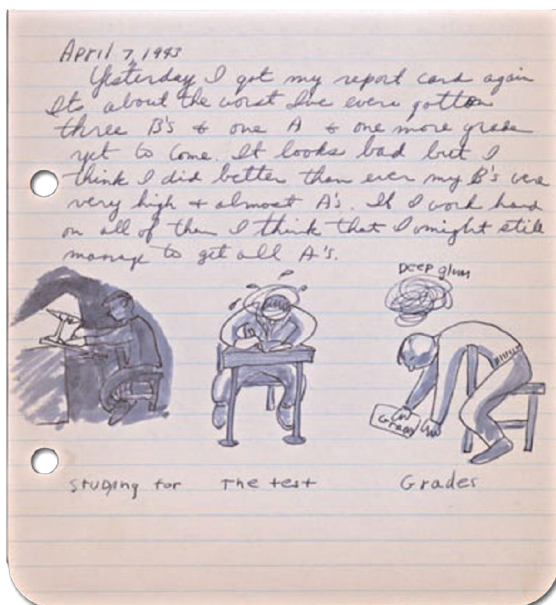 April 7, 1943
Yesterday I got my report card again
Its about the worst Ive ever gotten
three B's & one A & one more grade
yet to come. It looks bad but I
think I did better than ever my B's were
very high & almost A's. If I work hard
on all of them I think that I might still
manage to get all A's.
DEEP glum
Grades
Studing for
The test
Grades